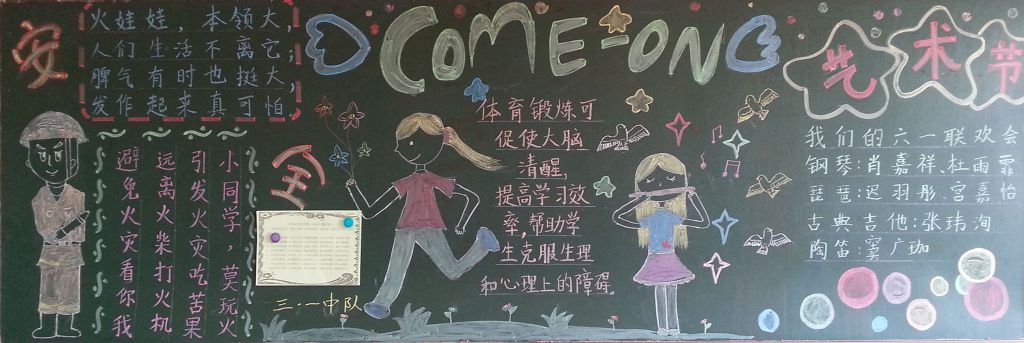 安全
火娃娃，本领大，
人们生活不离它；
脾气有时也挺大，
发作起来真可怕。
小同学，莫玩火
引发火灾吃苦果
远离火柴打火机
避免火灾看你我
三·一中队
COME-ON
体育锻炼可
促使大脑
清醒，
提高学习效
率，帮助学
生克服生理
和心理上的障碍。
艺术节
我们的六一联欢会
钢琴：肖嘉祥、杜雨霏
琵琶：迟羽彤、宫嘉怡
古典吉他：张玮洵
陶笛：窦广珈